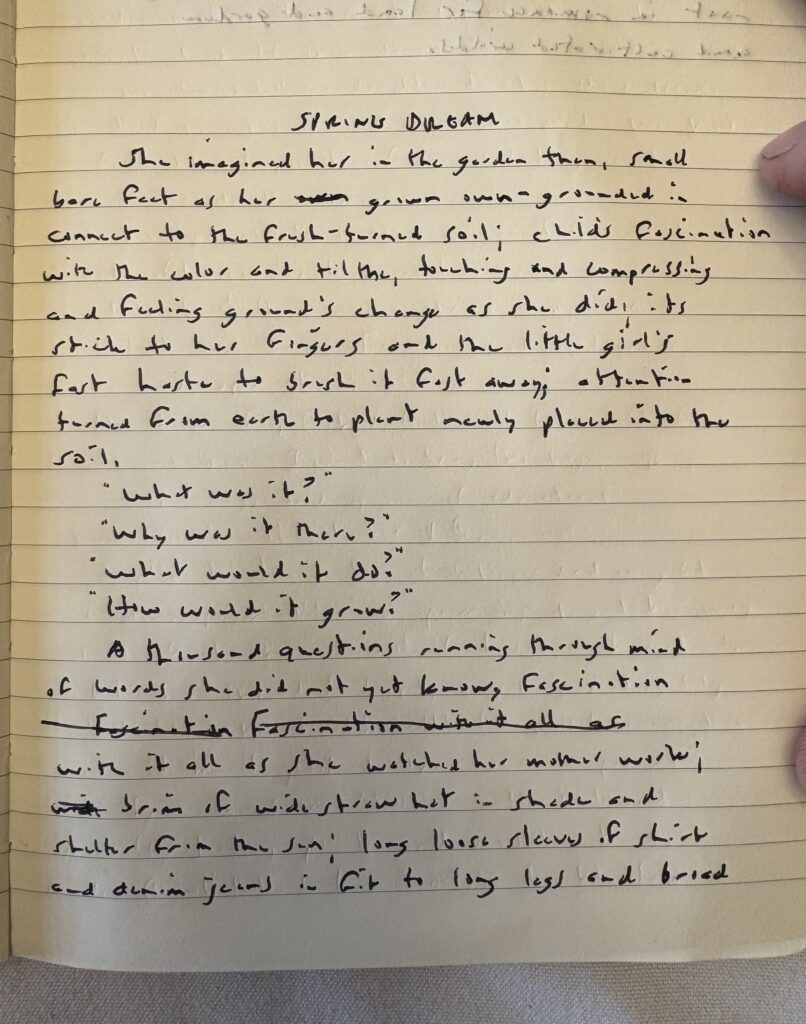 SPRING DREAM
She imagined her in the garden then, small
bare feet as her own grown own-grounded in
connect to the fresh-turned soil; child's fascination
with the color and tilthe, touching and compressing
and feeling ground's change as she did; its
stick to her fingers and the little girl's
fast haste to brush it fast away; attention
turned from earth to plant newly placed into the
soil.
"What was it?"
"Why was it there?"
"What would it do?"
"How would it grow?"
A thousand questions running through mind
of words she did not yet know, fascination
Fascination Fascination with it all as
with it all as she watched her mother work;
brim of wide straw hat in shade and
shelter from the sun; long loose sleeves of shirt
and denim jeans in fit to long legs and broad